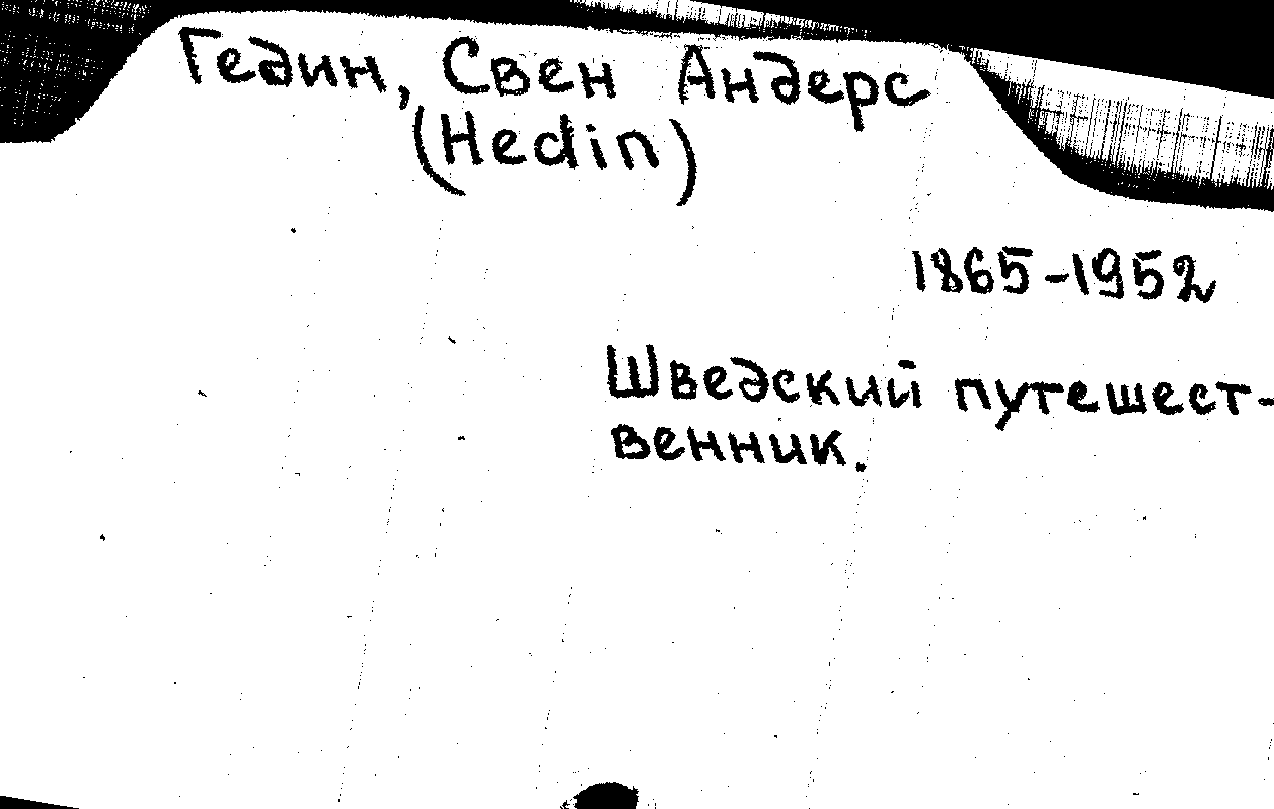 Гедин, Свен Андерс
(Hedin)
1865-1952
Шведский путешест-
венник.